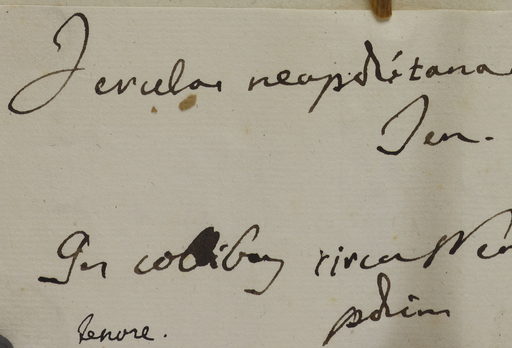 Ferula neapolitana
Ten.
In collibus circa Nea
polim
tenore.